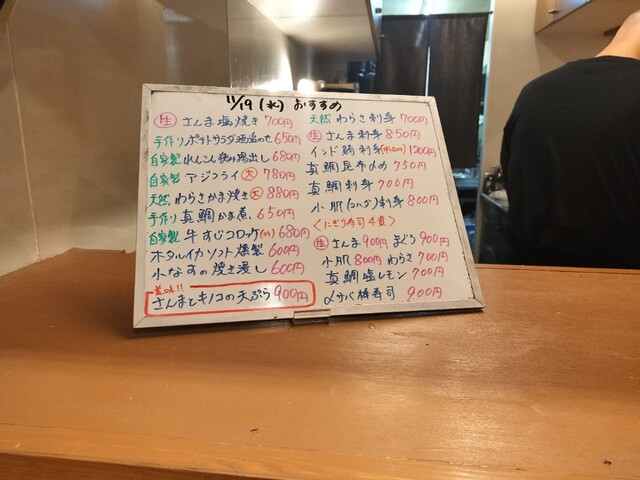 11/19(水) おすすめ
生 さんま塩焼き 700円
手作り ポテトサラダ 650円
自家製 れんこん挟み揚出し 680円
自家製 アジフライ 大 780円
天然 わらさかま焼き 大 880円
手作り 真鯛かま煮 650円
自家製 牛すじコロッケ 680円
ホタルイカソフト燻製 600円
小なすの焼き浸し 600円
美味!!
さんまとキノコの天ぷら 900円
天然 わらさ刺身 700円
生 さんま刺身 850円
インド鮪刺身 1200円
真鯛昆布〆め 750円
真鯛刺身 700円
小肌(コハダ)刺身 800円
<にぎり寿司4貫>
生 さんま 900円 まぐろ 900円
小肌 800円 わらさ 700円
真鯛塩レモン 700円
〆サバ棒寿司 900円